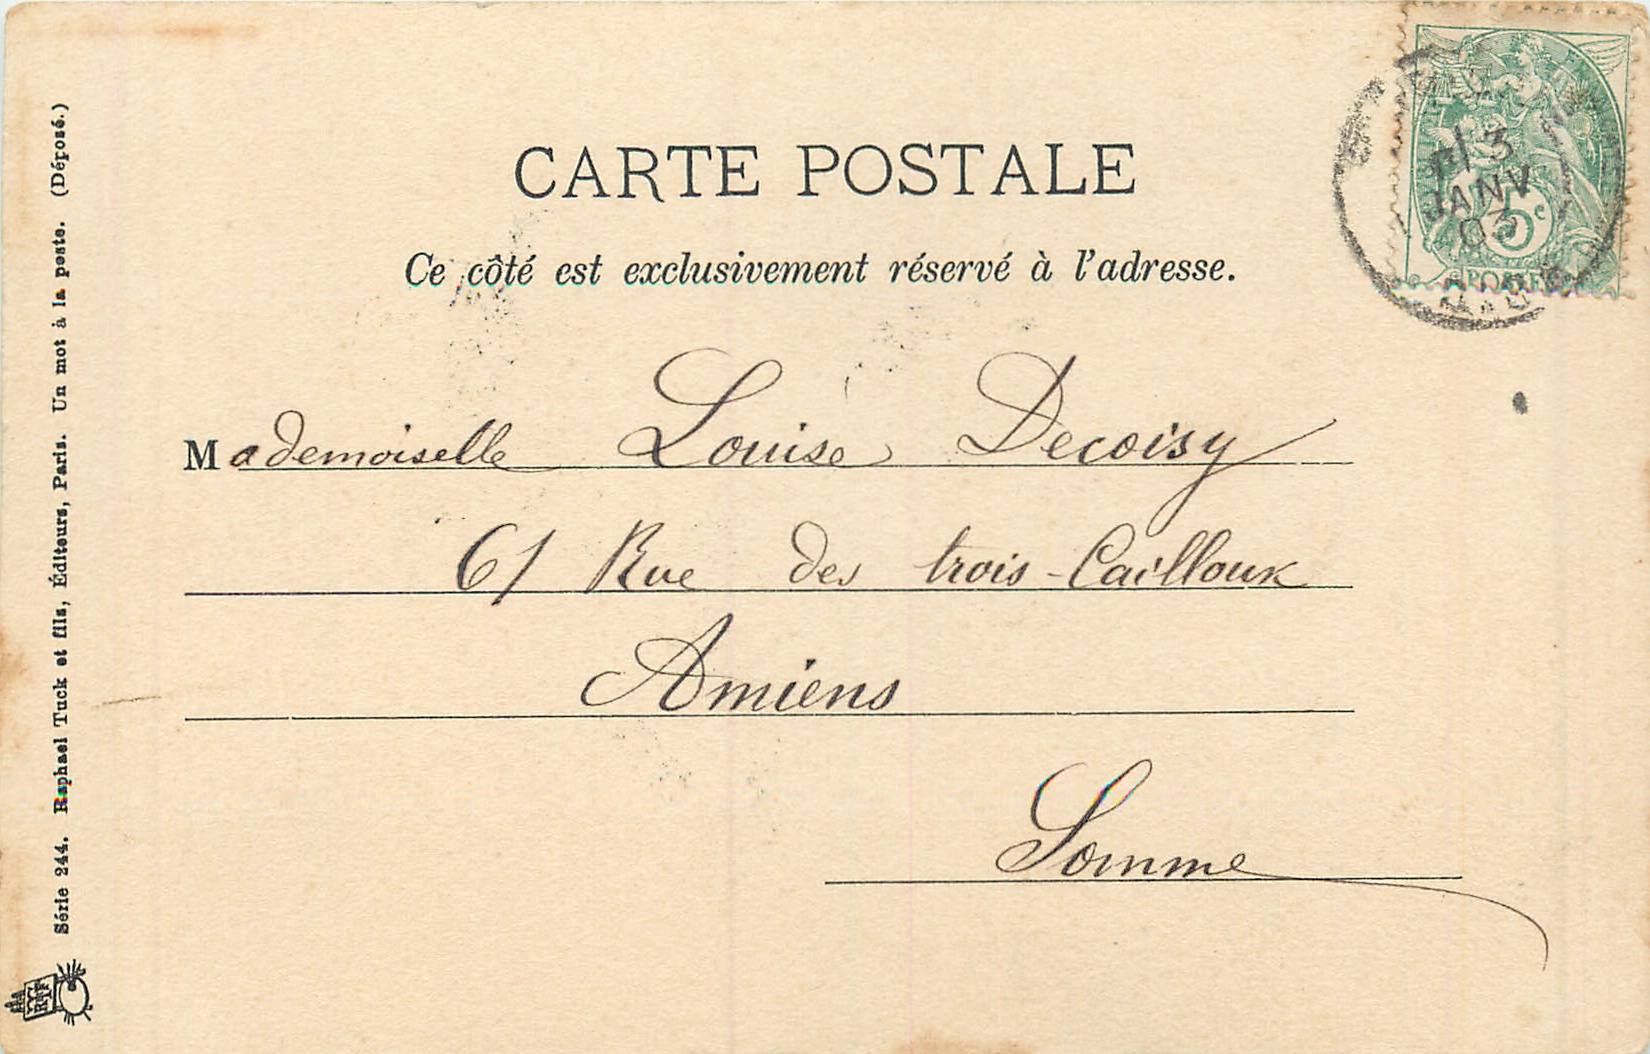 CARTE POSTALE
Ce côté est exclusivement réservé à l'adresse.
Mademoiselle Louise Decoisy
61 Rue des trois-Cailloux
Amiens
Somme
Série 244. Raphael Tuck et fils, Éditeurs, Paris. Un mot à la poste. (Déposé.)
3
JANV
03
5c
POSTES